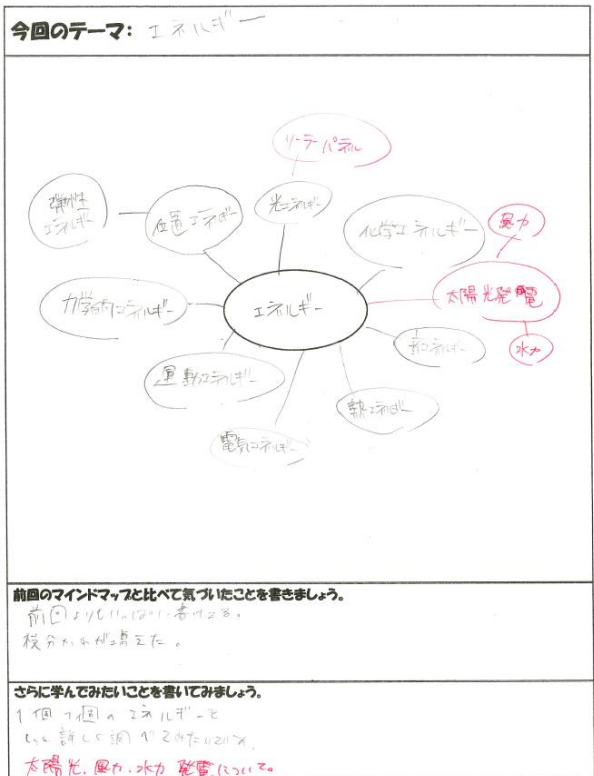 今回のテーマ: エネルギー
ソーラーパネル
弾性
エネルギー
位置エネルギー
光エネルギー
化学エネルギー
風力
太陽光発電
力学的エネルギー
エネルギー
音エネルギー
水力
運動エネルギー
熱エネルギー
電気エネルギー
前回のマインドマップと比べて気づいたことを書きましょう。
前回よりもいっぱい書けてる。
枝分かれが増えた。
さらに学んでみたいことを書いてみましょう。
1個1個のエネルギーを
もっと詳しく調べてみたいです。
太陽光、風力、水力発電について。